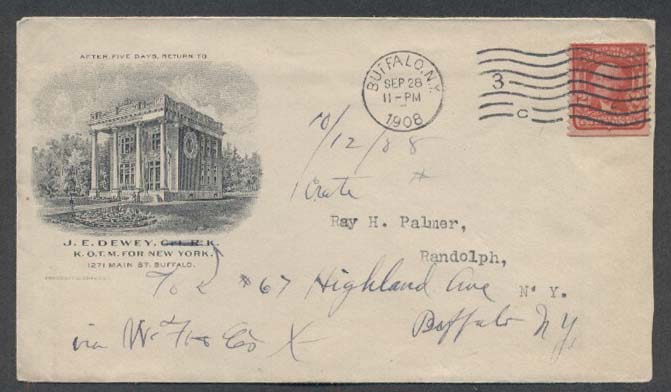 AFTER FIVE DAYS, RETURN TO
J. E. DEWEY, Gt. R. K.
K. O. T. M. FOR NEW YORK,
1271 MAIN ST. BUFFALO.
BUFFALO, N.Y.
SEP 28
11-PM
1908
3
C
10/12/08
1 Crate
Ray H. Palmer,
Randolph,
N. Y.
To #67 Highland Ave
Buffalo NY,
via Co X